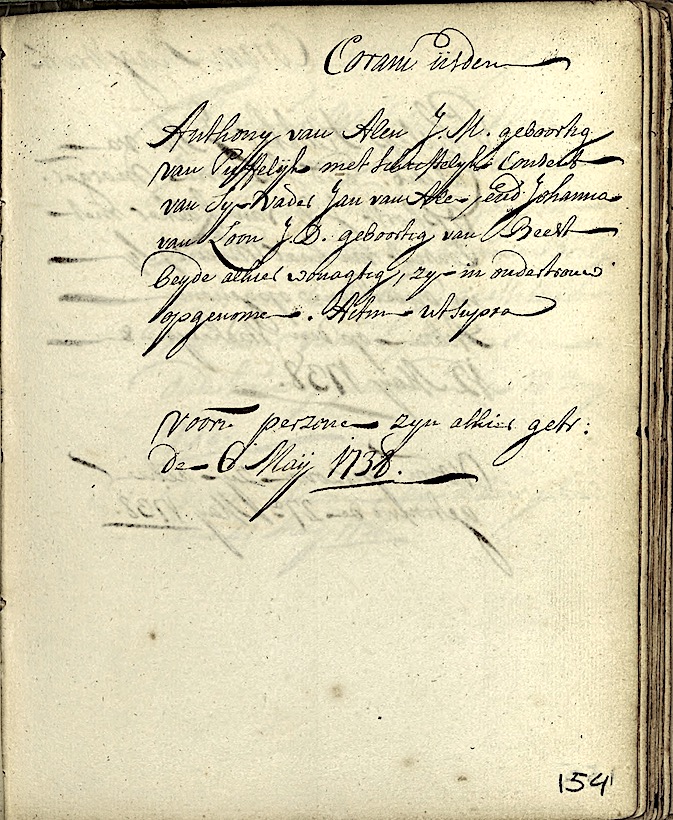 Coram iisdem
Anthony van Alen J.M. geboortig
van Puffelijk met schriftelijk Consent
van sijn Vader Jan van Alen, end Johanna
van Loon J.D. geboortig van Beest
beyde alhier woonagtig, zyn in ondertrouw
opgenomen. Actum ut supra
voorn persone zyn alhier getr:
de 6 Maij 1738.
154